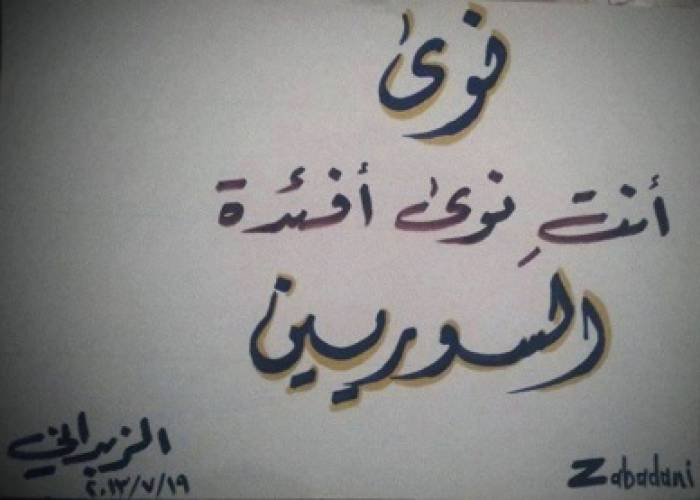 نوىٰ
أنتِ نوىٰ أفئدة
السوريين
الزبداني
٢٠١٣/٧/١٩
Zabadani